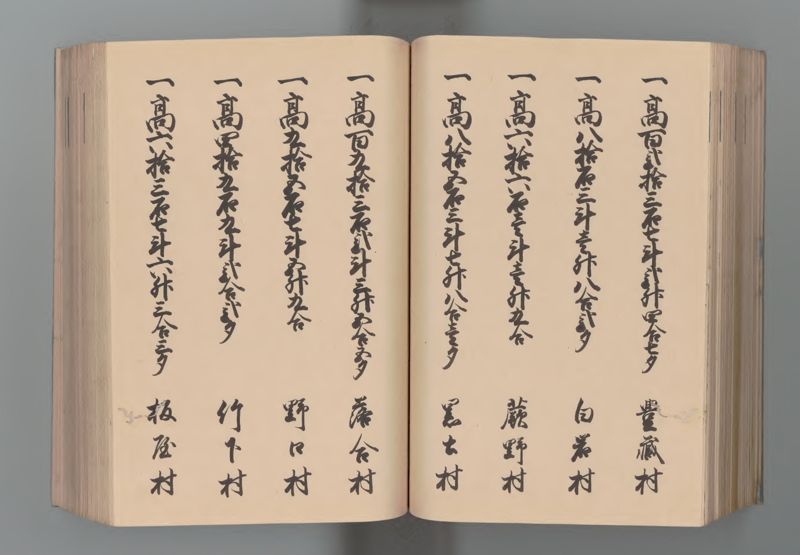 一高百弐拾三石七斗弐升四合七夕 豊蔵村
一高八拾石三斗壱升八合弐夕 白岩村
一高六拾六石壱斗壱升九合 蕨野村
一高八拾五石三斗七升八合壱夕 黒士村
一高百九拾三石弐斗三升五合五夕 落合村
一高九拾五石七斗五升九合 野口村
一高四拾九石九斗弐合弐夕 竹下村
一高六拾三石七斗六升三合三夕 板屋村